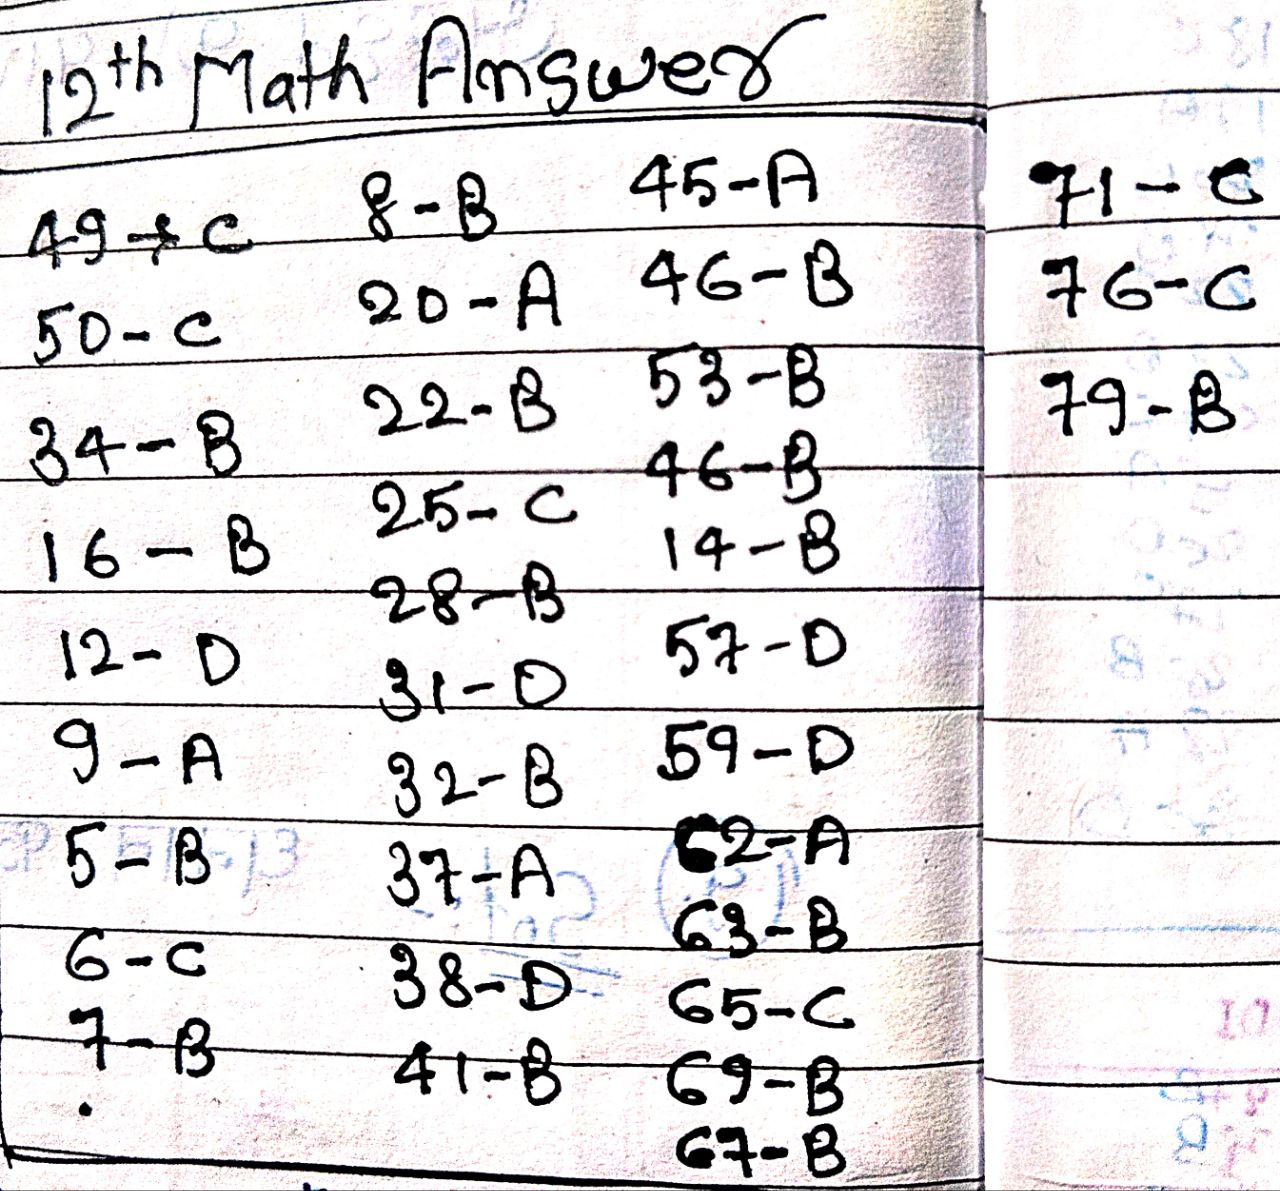 12th Math Answer
49 → C
50 - C
34 - B
16 - B
12 - D
9 - A
5 - B
6 - C
7 - B
8 - B
20 - A
22 - B
25 - C
28 - B
31 - D
32 - B
37 - A
38 - D
41 - B
45 - A
46 - B
53 - B
46 - B
14 - B
57 - D
59 - D
62 - A
63 - B
65 - C
69 - B
67 - B
71 - C
76 - C
79 - B